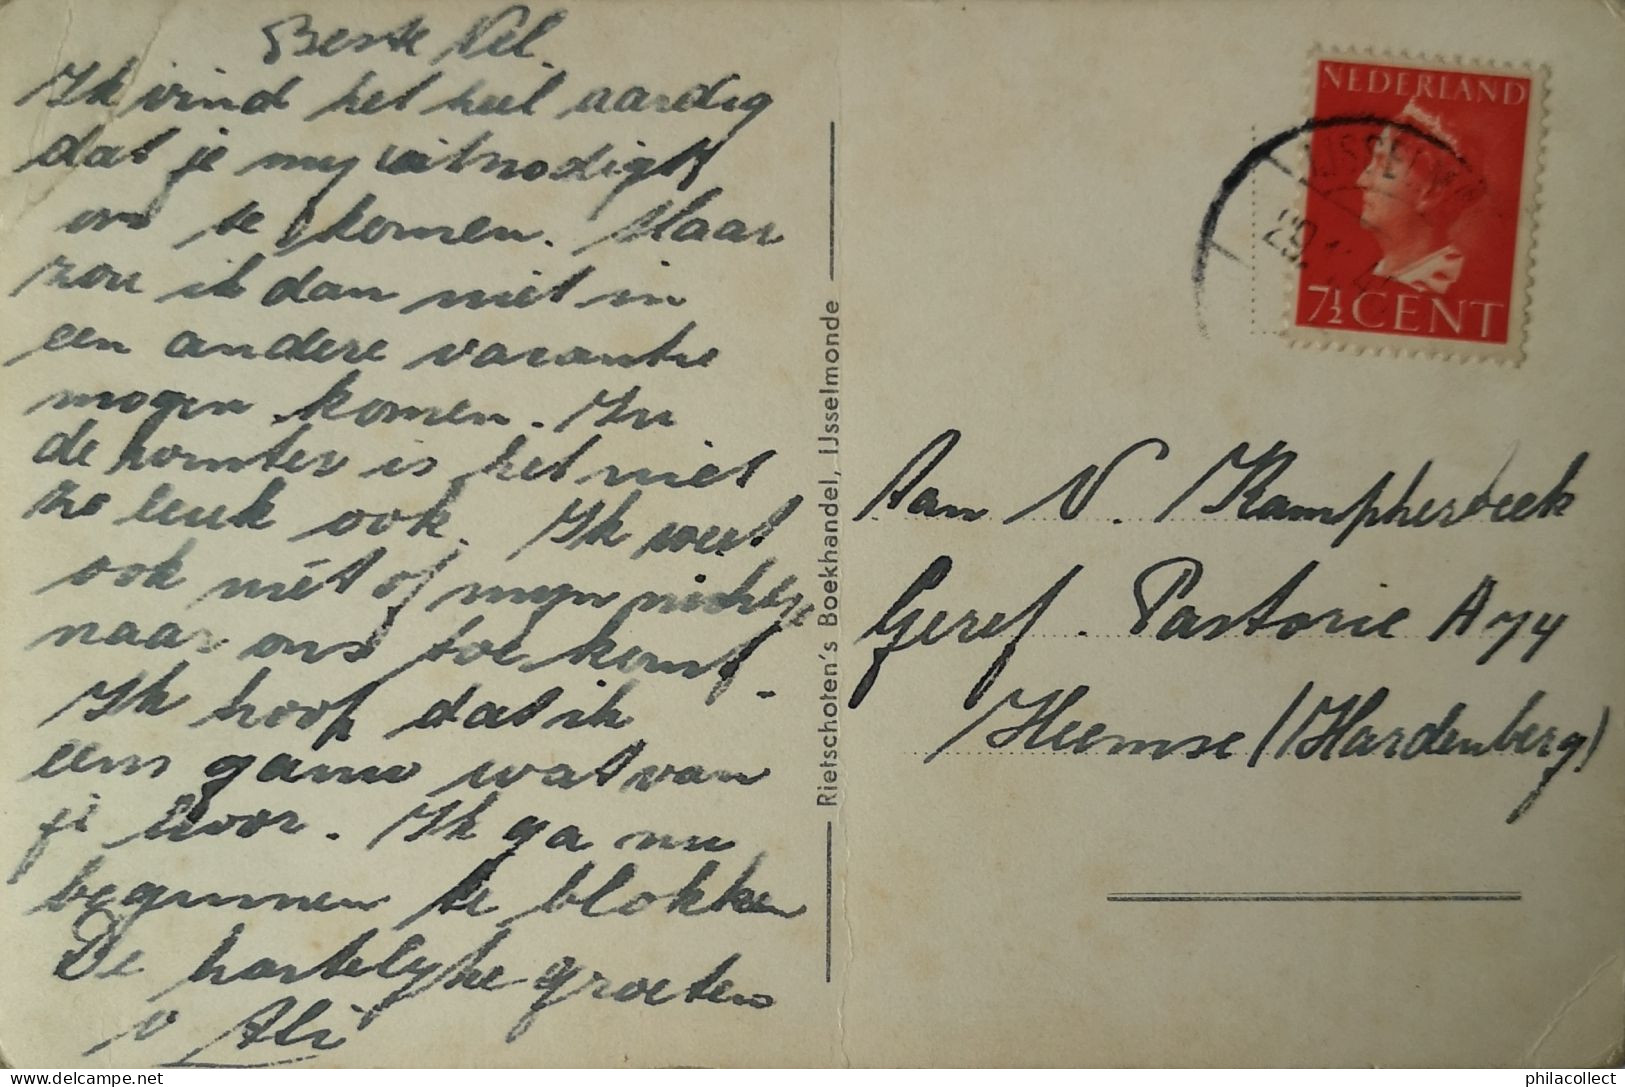 Beste Nel.
Ik vind het heel aardig
dat je mij uitnodigt
om te komen. Maar
zou ik dan niet in
een andere vacantie
mogen komen. In
de winter is het niet
zo leuk ook. Ik weet
ook niet of mijn nichtje
naar ons toe komt.
Ik hoop dat ik
eens gauw wat van
je hoor. Ik ga nu
beginnen te blokken
De hartelijke groeten
v Ali
Rietschoten's Boekhandel, IJsselmonde
NEDERLAND
7½ CENT
IJSSELM
29.
Aan N. Kampherbeek
Geref. Pastorie A 74
Heemse (Hardenberg)
philacollect